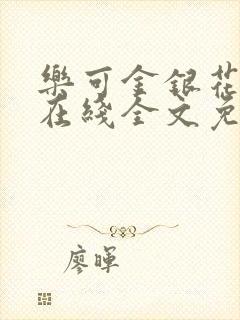 樂可金銀花
在綫全文免
廖暉